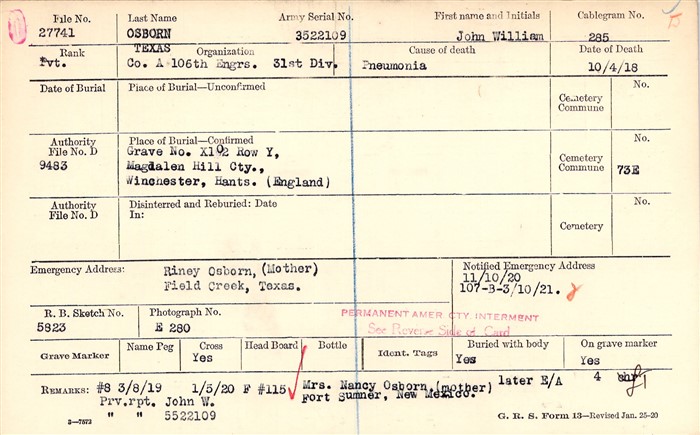 File No. Last Name Army Serial No. First name and Initials Cablegram No.
27741 OSBORN 3522109 John William 285
TEXAS
Rank Organization Cause of death Date of Death
Pvt. Co. A 106th Engrs. 31st Div. Pneumonia 10/4/18
Date of Burial Place of Burial—Unconfirmed No.
Cemetery
Commune
Authority Place of Burial—Confirmed No.
File No. D Grave No. X102 Row Y,
9483 Magdalen Hill Cty., Cemetery
Winchester, Hants. (England) Commune 73E
Authority Disinterred and Reburied: Date No.
File No. D In:
Cemetery
Emergency Address: Riney Osborn, (Mother) Notified Emergency Address
Field Creek, Texas. 11/10/20
107-B-3/10/21.
R. B. Sketch No. Photograph No. PERMANENT AMER. CTY. INTERMENT
5823 E 280 See Reverse Side of Card
Grave Marker Name Peg Cross Head Board Bottle Ident. Tags Buried with body On grave marker
Yes Yes Yes
REMARKS: #8 3/8/19 1/5/20 F #115 Mrs. Nancy Osborn, (mother) later E/A 4
Prv.rpt. John W. Fort Sumner, New Mexico.
" " 5522109
3—7572 G. R. S. Form 13—Revised Jan. 25-20